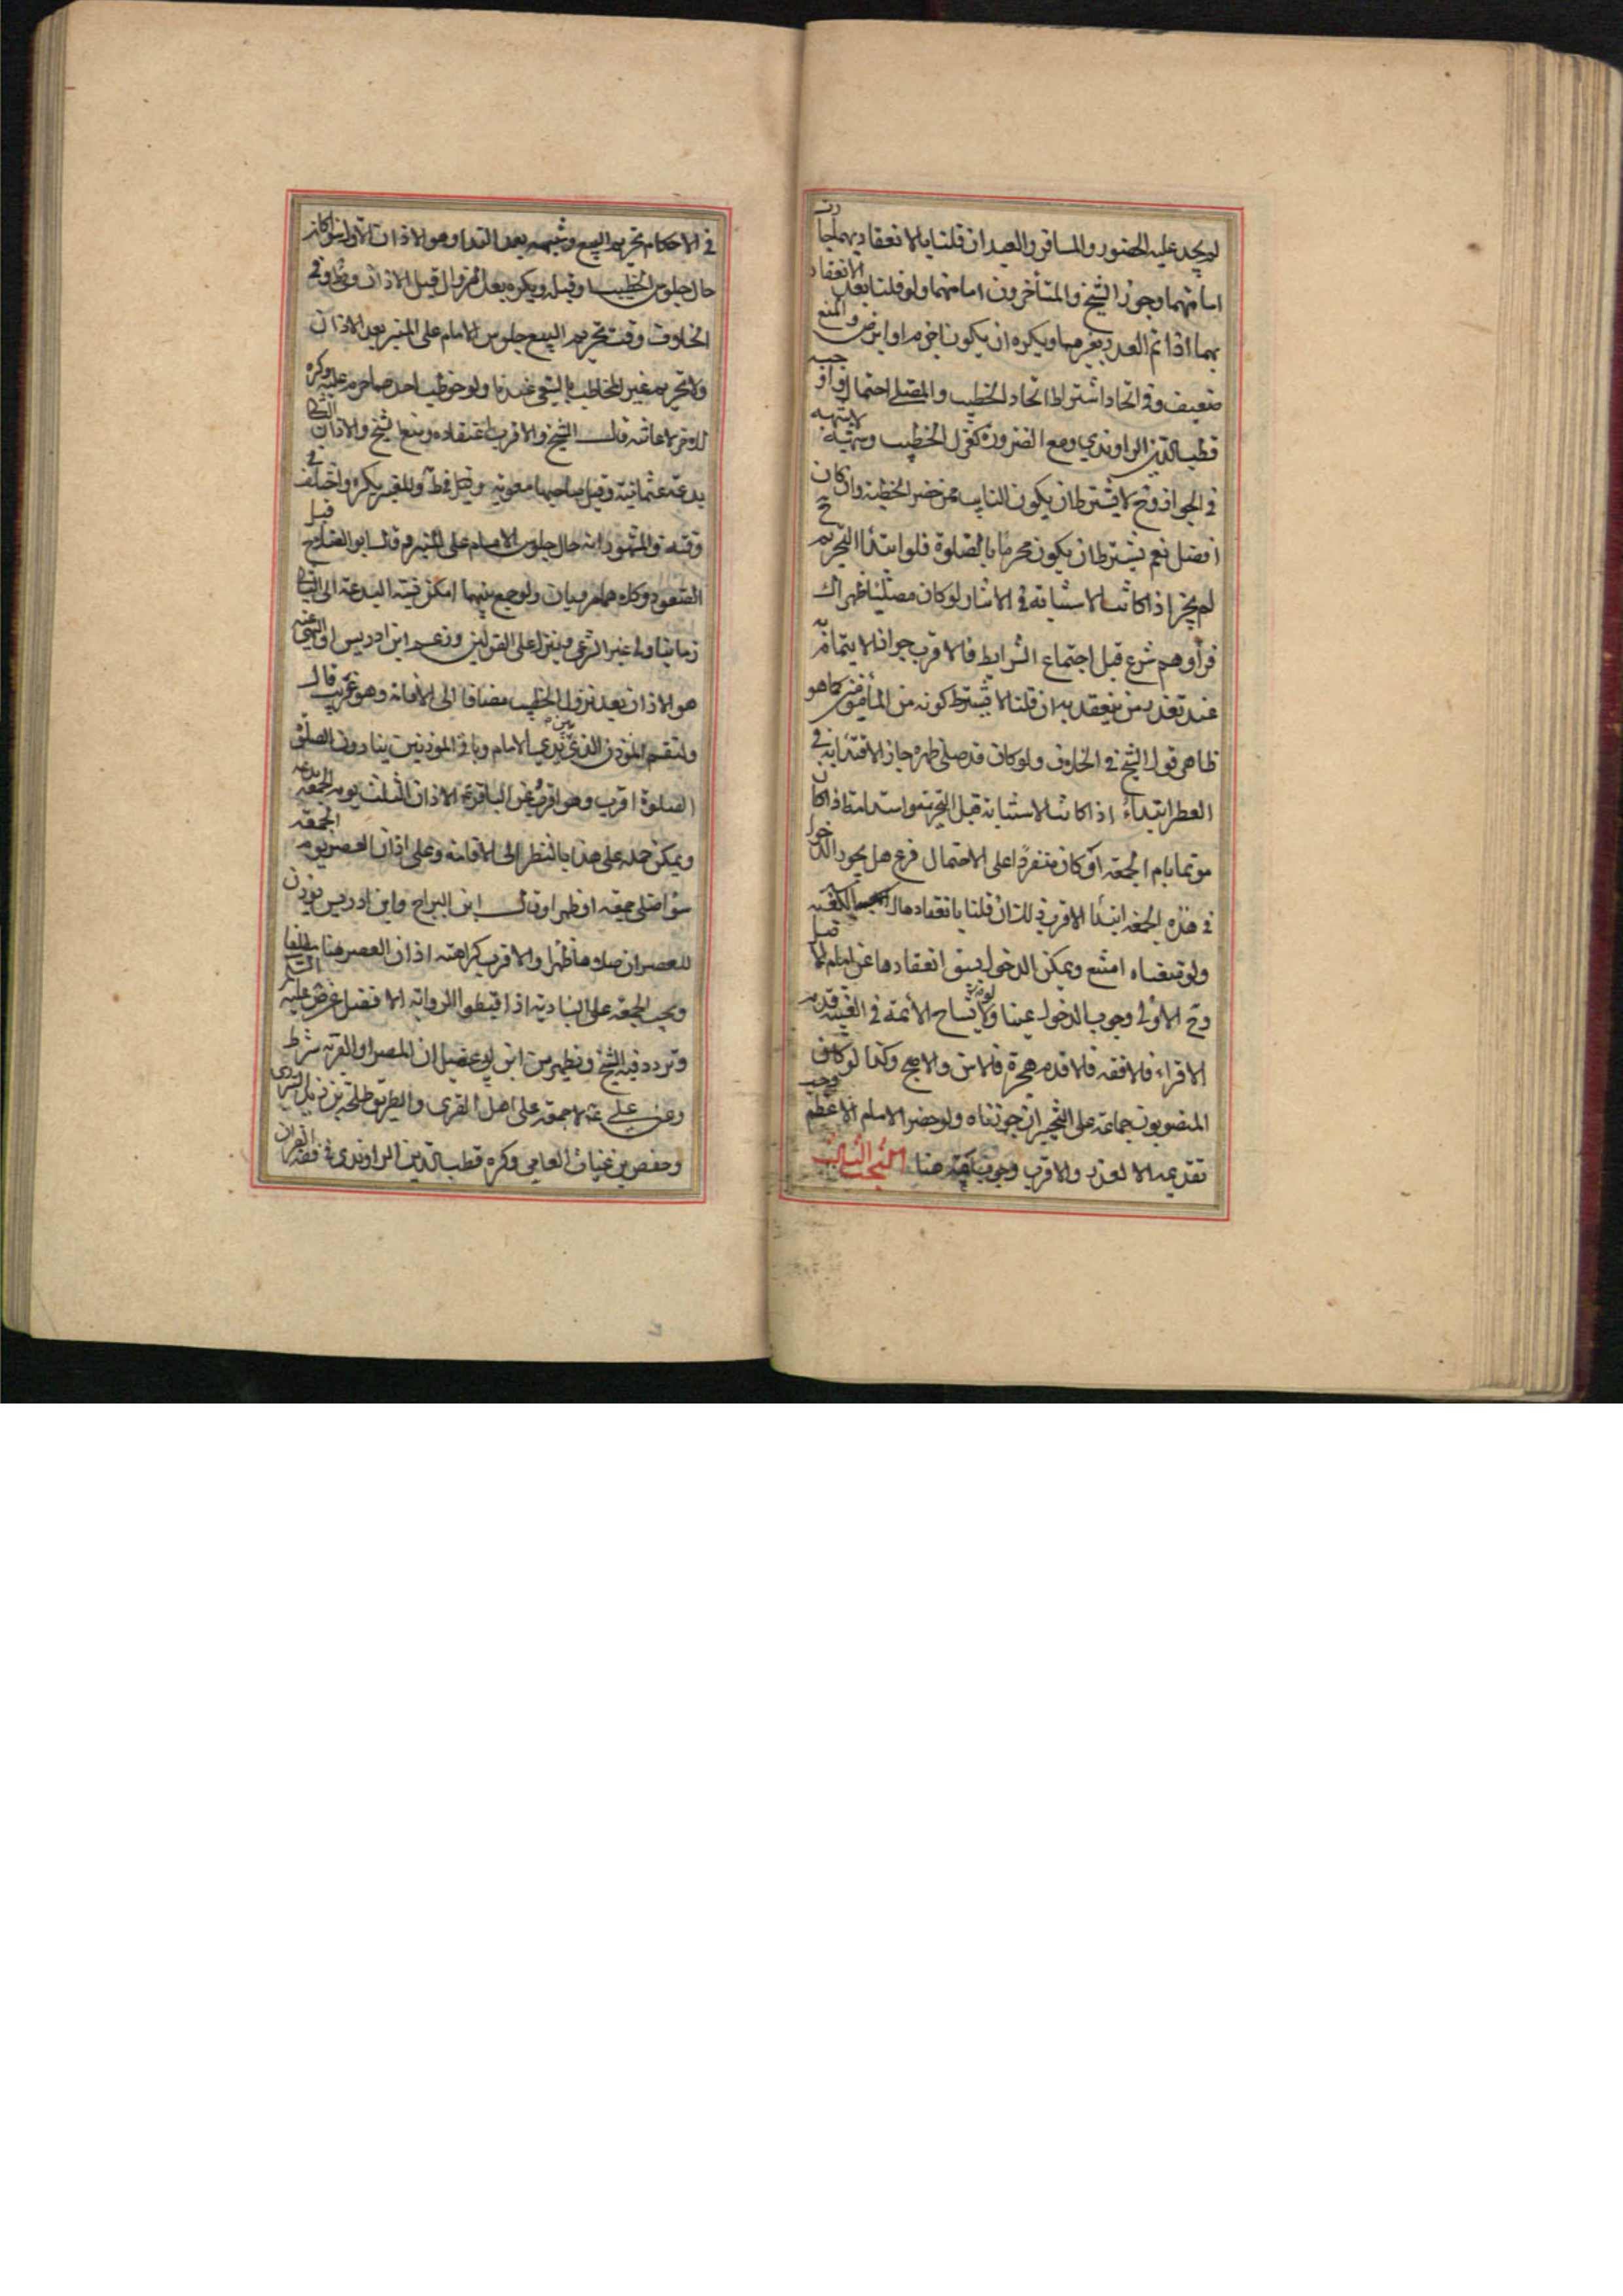 لم يجب عليه الحضور والمسافر والعبد ان قلنا بالانعقاد بهما جازت
امامتهما وجوز الشيخ والمتأخرون امامتهما ولو قلنا بعدم الانعقاد
بهما اذا تم العدد بغيرهما ويكره ان يكون اجذم او ابرص والمنع
ضعيف وفي اتحاد اشتراط اتحاد الخطيب والمصلي احتمال اوجبه
قطب الدين الراوندي ومع الضرورة كعزل الخطيب وموته لا شبهة
في الجواز وح لا يشترط ان يكون النايب ممن حضر الخطبة وان كان
افضل نعم يشترط ان يكون محرما بالصلوة فلو ابتدأ التحريم ح
لم يجز اذا كانت الاستنابة في الاثناء ولو كان مصليا ظهرا لك
فرأوهم شرع قبل اجتماع الشرايط فالاقرب جواز الايتمام به
عند تعذر من ينعقد به ان قلنا لا يشترط كونه من المأمومين كما هو
ظاهر قول الشيخ في الخلاف ولو كان قد صلى ظهره جاز الاقتداء به في
العصر ابتداء اذا كانت الاستنابة قبل التحريم واستدامة اذا كان
مؤتما بامام الجمعة او كان منفردا على الاحتمال فرع هل يجوز الدخول
في هذه الجمعة ابتدأ الاقرب ذلك ان قلنا بانعقادها
ولو تبعناه امتنع ويمكن الدخول لسبق انعقادها عن امام قبل
وح الاولى وجوب الدخول عينا ولو تشاح الأئمة في الغيبة قدم
الاقراء فالافقه فالاقدم هجرة فالاسن والاصبح وكذا لو كان
المنصوبون جماعة على التخيير ان جوزناه ولو حضر الامام الاعظم وجب
تقديمه الا لعذر والاقرب وجوب هنا البحث الثالث
في الاحكام يحرم البيع وشبهه بعد النداء وهو الاذان الاول سواء كان
حال جلوس الخطيب او قبله ويكره بعد الزوال قبل الاذان وظ في
الخلاف وقت تحريم البيع جلوس الامام على المنبر بعد الاذان
ولا تحريم لغير المخاطب بالسعي عندنا ولو خوطب احدهما حرم عليه وكره
للاخر لاعانته قال الشيخ والاقرب انعقاده ومنع الشيخ والاذان الثاني
بدعة عثمانية وقيل صاحبها معوية وقيل قط وللقير يكره واختلف في
وقته والمشهور انه حال جلوس الامام على المنبر وقال ابو الصلاح قبل
الصعود وكلاهما مرويان ولو جمع بينهما امكن نسبة البدعة الى الثاني
زمانيا والى غير الشرعي فينزل على القولين وزعم ابن ادريس ان المنهي عنه
هو الاذان بعد نزول الخطيب مضافا الى الاقامة وهو غريب قال
ولنقم المؤذن الذي بين يدي الامام وباقي المؤذنين ينادون الصلوة
الصلوة اقرب وهو اقرب وعن الباقر ع الاذان الثالث يوم الجمعة بدعة
ويمكن حمله على هذا بالنظر الى الاقامة وعلى اذان العصر يوم الجمعة
سواء صلى جمعة او ظهرا وقال ابن البراج وابن ادريس يؤذن
للعصر ان صلاها ظهرا والاقرب كراهته اذان العصر هنا مطلقا
ويجب الجمعة على البادية اذا قبطوا الرواية الافضل عن
وتردد فيه الشيخ ويظهر من ابن ابي عقيل ان المصر او القرية شرط
وعن علي ع لا جمعة على اهل القرى والطريق طلحة بن زيد السري
وحفص بن غياث العامي وكره قطب الدين الراوندي في فقه القران